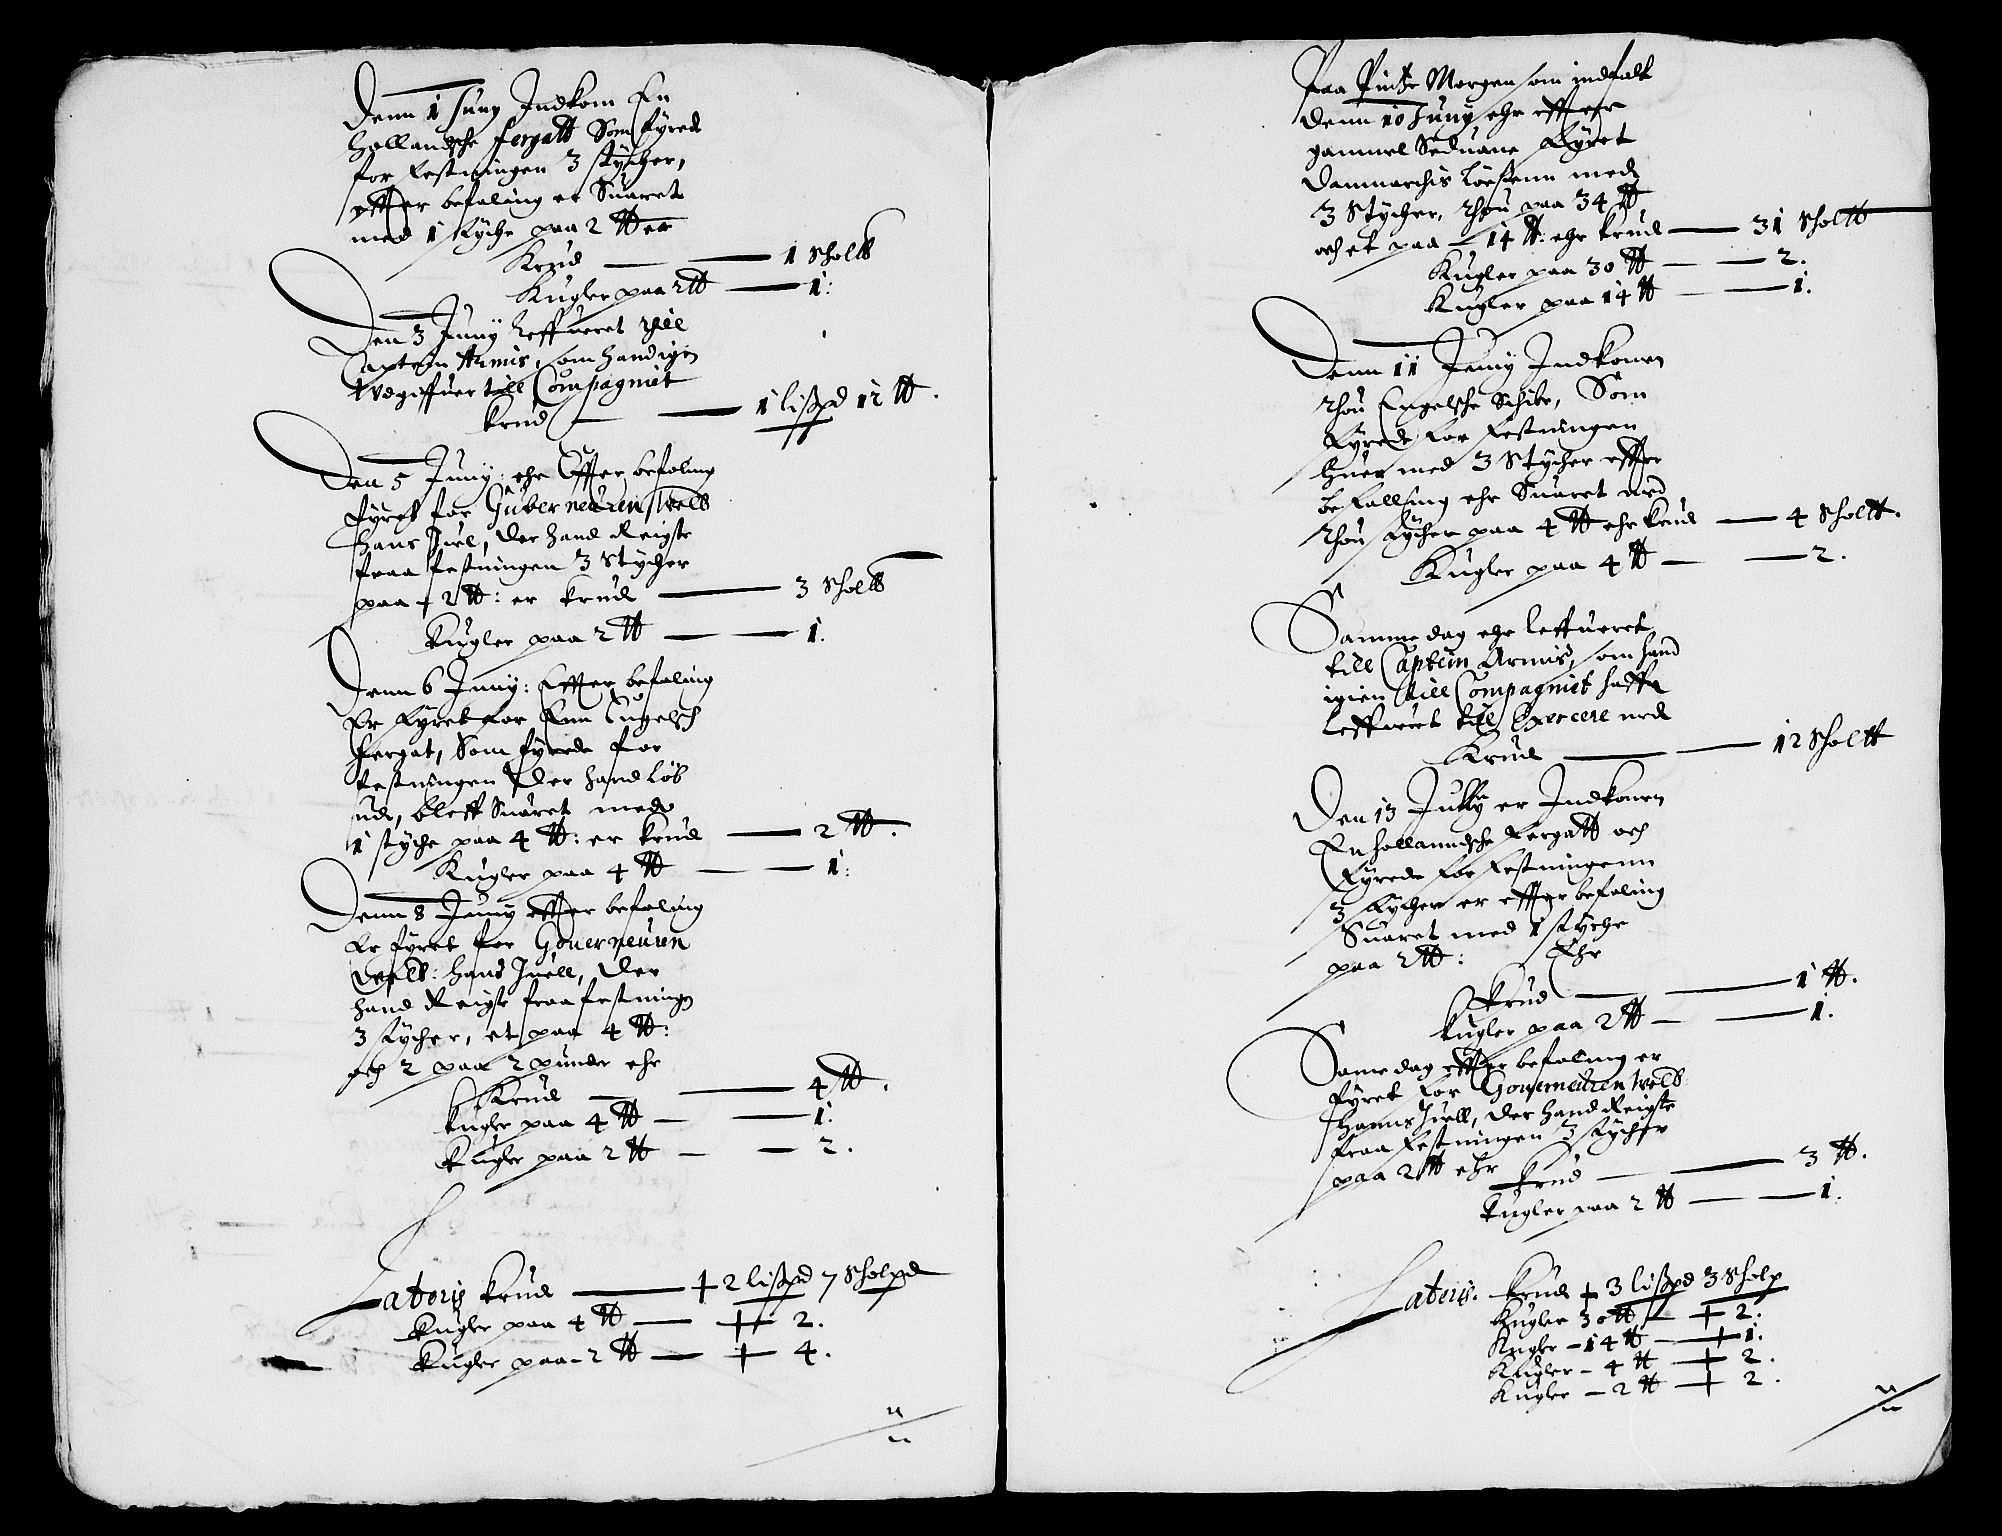 Denn 1 Juny Indkom En
Hollandsche fergatt Som fyrede
for festningen 3 stycher,
effter befaling er Suaret
med 1 styche paa 2 ℔ er
Krud 1 Schol℔
Kugler paa 2 ℔ 1:
Den 3 Juny leffueret till
Captein Armis, som hand igen
udgiffuer till Compagniet
krud 1 lißpd 12 ℔.
Den 5 Juny: ehr Effter befaling
fyret for Guberneuren Welb
Hans Juel, der hand Reigste
fraa festningen 3 stycher
paa 2 ℔: er krud 3 Schol℔
Kugler paa 2 ℔ 1.
Denn 6 Juny: Effter befaling
Er fyret for Enn Engelsch
fergat, Som fyrede for
festningen der hand løb
ud, bleff Suaret med
1 styche paa 4 ℔: er krud 2 ℔.
Kugler paa 4 ℔ 1:
Denn 8 Juny effter befaling
Er fyret for Gouerneuren
Welb: Hans Juell, der
hand Reigste fraa festningen
3 stycher, et paa 4 ℔:
och 2 paa 2 punder ehr
Krud 4 ℔.
kugler paa 4 ℔ 1.
Kugler paa 2 ℔ 2.
Lateris krud 2 lißpd 7 Scholpd
Kugler paa 4 ℔ 2.
Kugler paa 2 ℔ 4.
Paa Pintze Morgen som indfalt
denn 10 Juny ehr effter
gammel Seduane fyret
Danmarchis løesenn med
3 Stycher, thou paa 34 ℔
och et paa 14 ℔: ehr krud 31 Schol℔
Kugler paa 30 ℔ 2.
Kugler paa 14 ℔ 1.
Denn 11 Juny Indkomen
thou Engelsche Schibe, Som
fyrede for festningen
huer med 3 Stycher effter
befalling ehr Suaret med
thou stycher paa 4 ℔ ehr krud 4 Schol℔.
Kugler paa 4 ℔ 2.
Samme dag ehr leffueret
till Captein Armis, som hand
igien till Compagniet haffr
leffueret till Exercere med
Krud 12 Schol℔
Den 13 Jully er Indkomen
En hollanndsche fergatt och
fyrede for festningenn
3 stycher er effter befaling
Suaret med 1 styche
paa 2 ℔: Ehr
krud 1 ℔.
kugler paa 2 ℔ 1.
Same dag effter befaling er
fyret for Gouerneuren Welb
Hanns Juell, der hand Reigste
fraa festningen 3 stycher
paa 2 ℔ ehr krud 3 ℔.
Kugler paa 2 ℔ 1.
Lateris. krud 3 lißpd 3 Scholp
Kugler 30 ℔ 2:
Kugler - 14 ℔ 1.
Kugler - 4 ℔ 2.
Kugler - 2 ℔ 2.